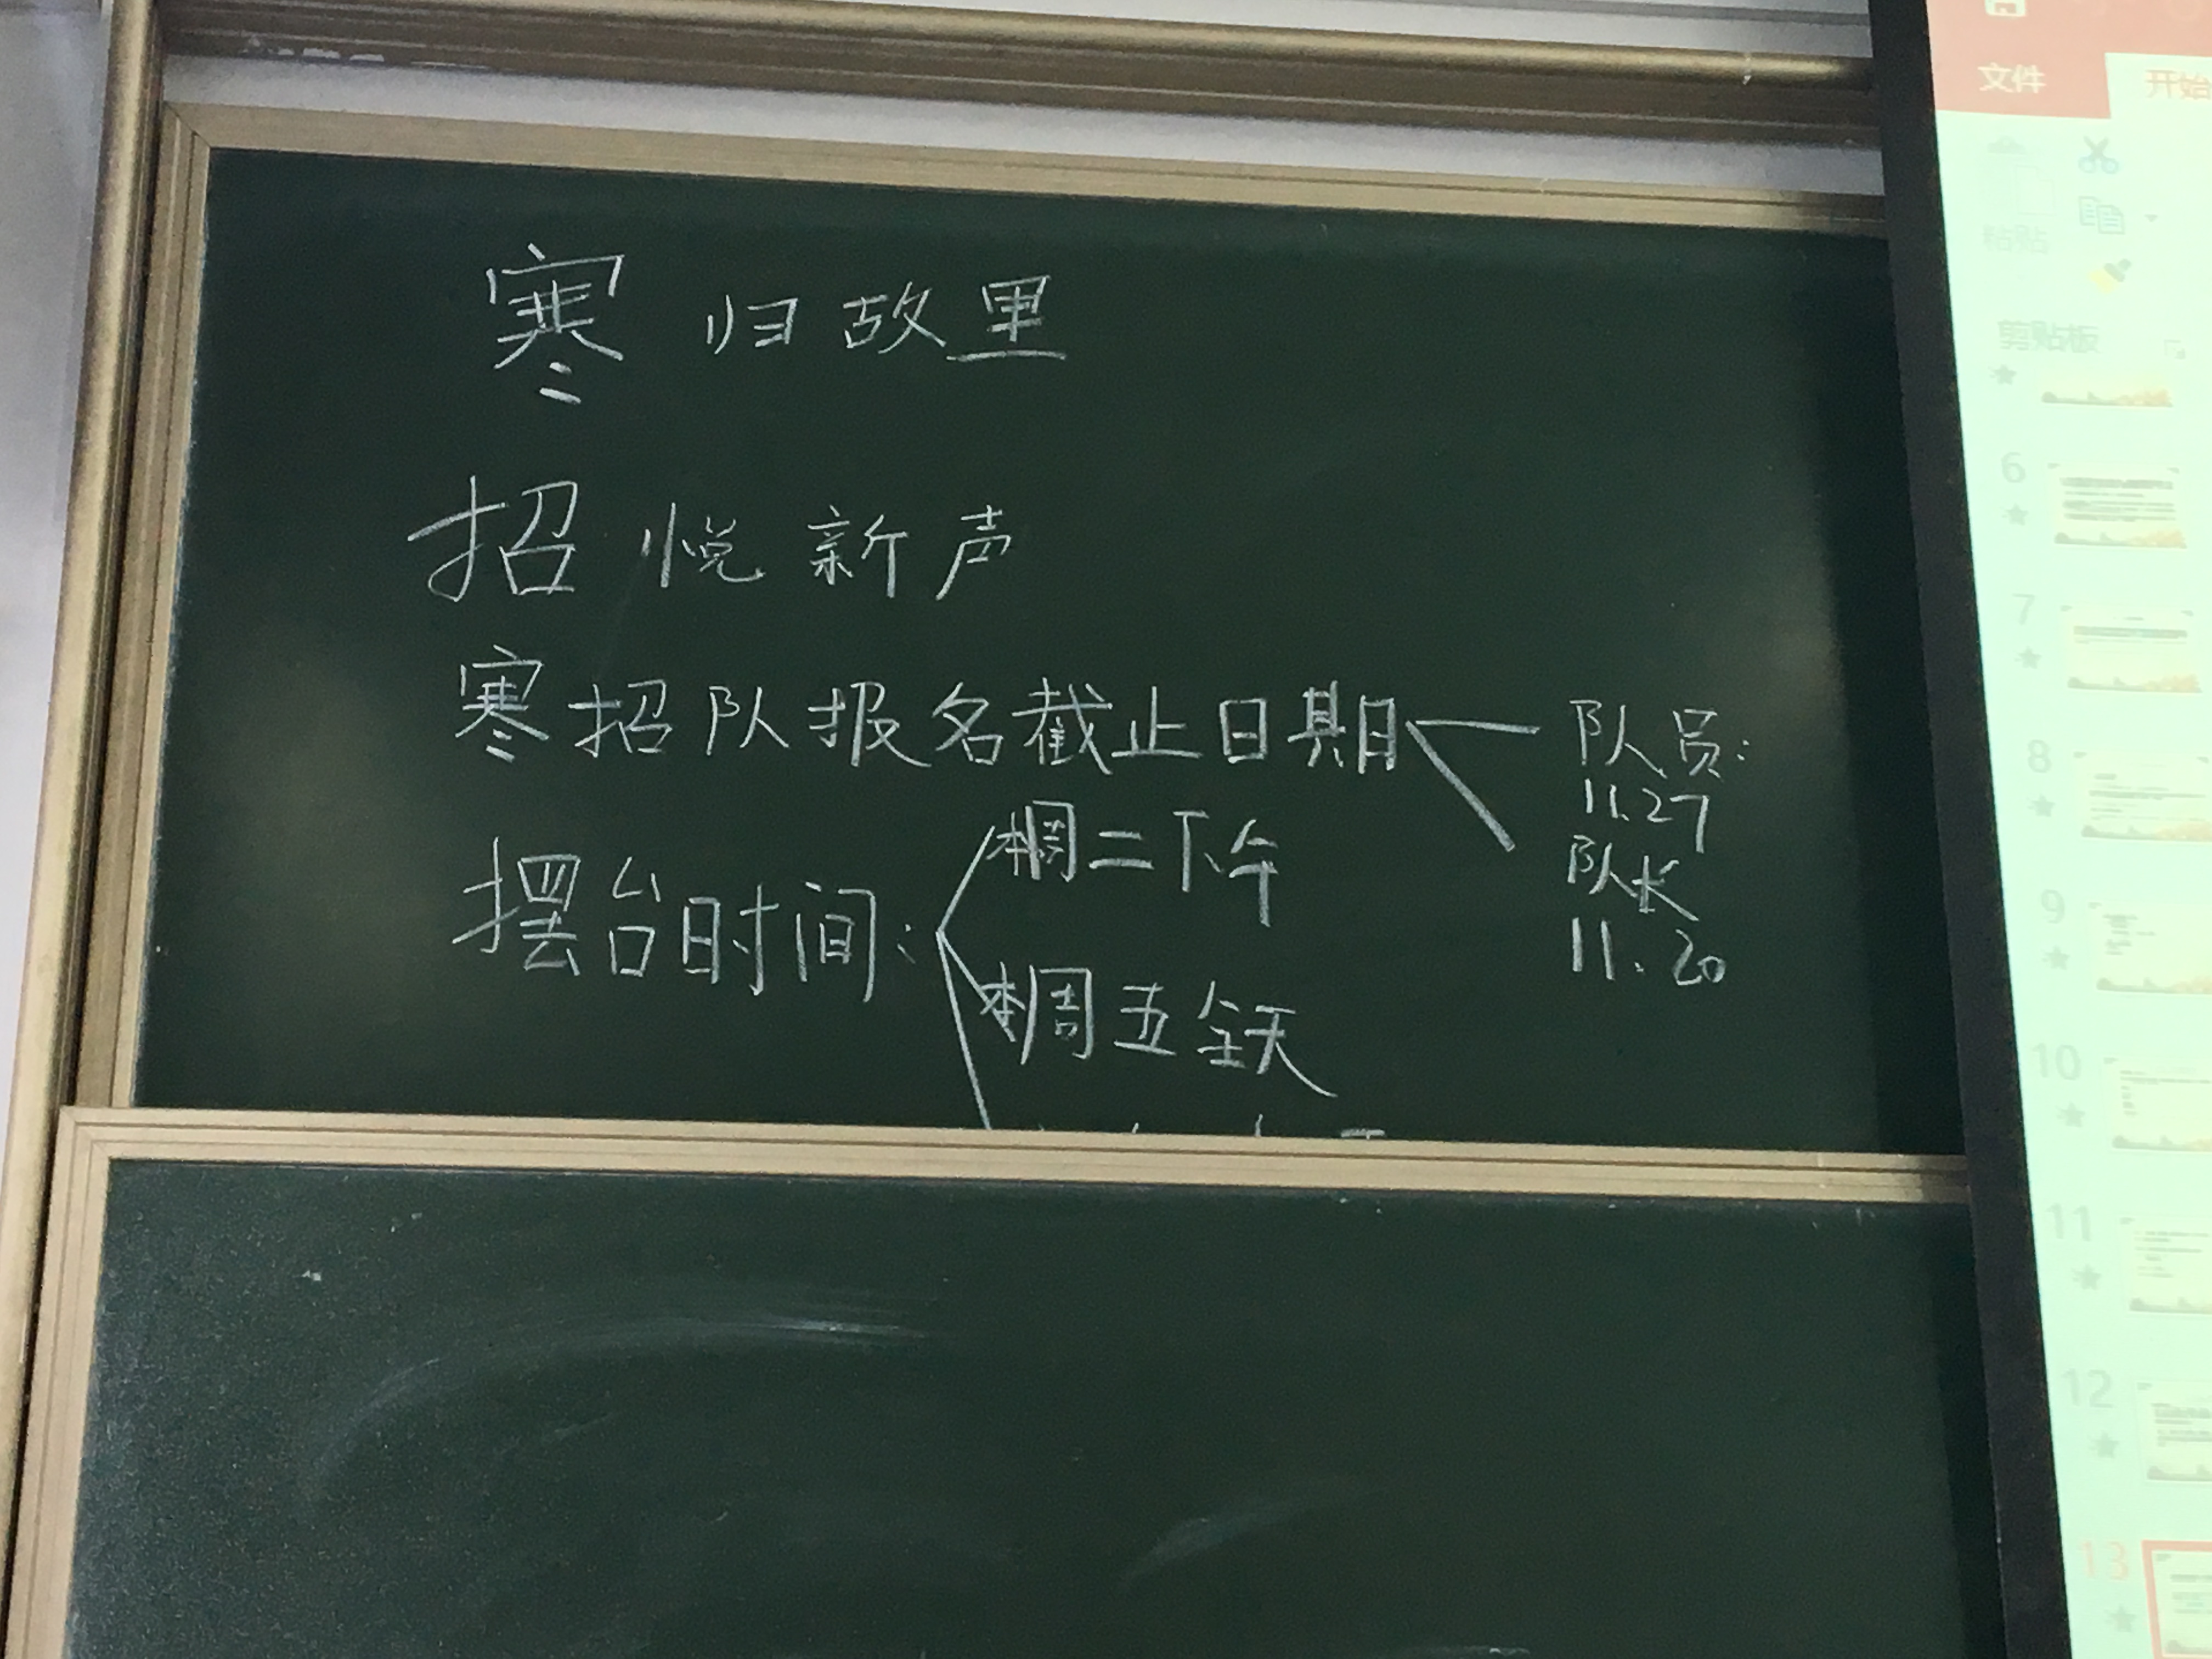 寒归故里
招悦新声
寒招队报名截止日期
队员:
11.27
队长
11.20
摆台时间:
本周二下午
本周五全天
文件
开始
粘贴
剪贴板
6
7
8
9
10
11
12
13